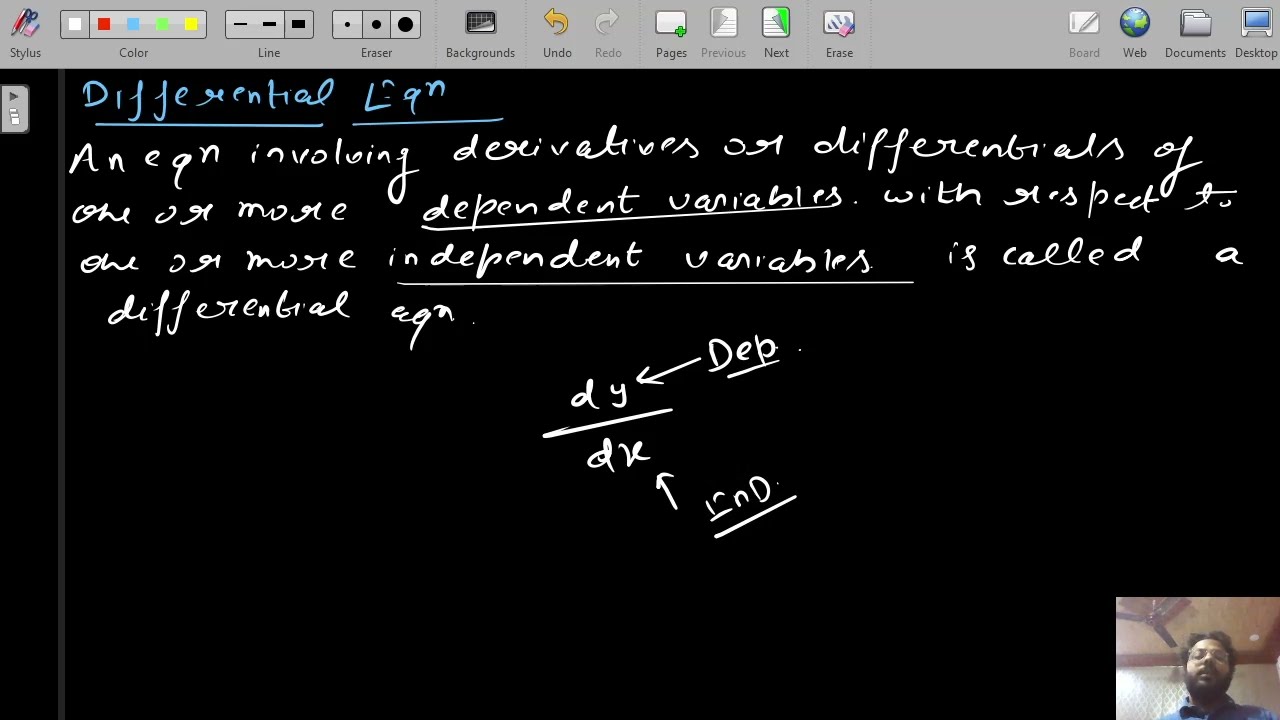 Stylus Color Line Eraser Backgrounds Undo Redo Pages Previous Next Erase Board Web Documents Desktop
Differential Eqn
An eqn involving derivatives or differentials of
one or more dependent variables. with respect to
one or more independent variables. is called a
differential eqn.
Dep.
dy
dx
InD.